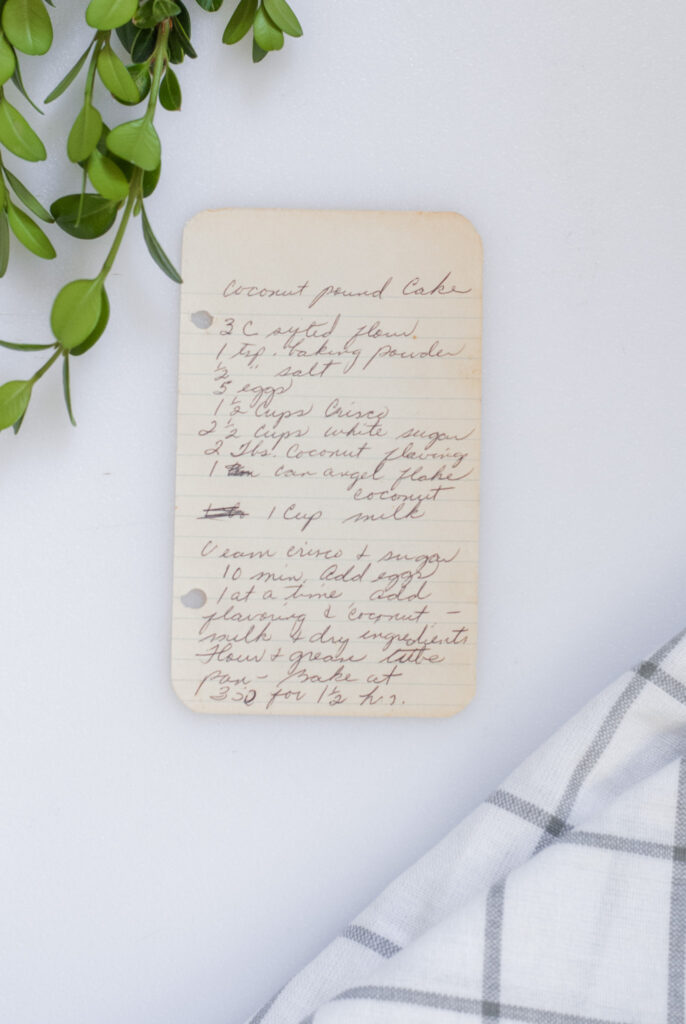 Coconut pound Cake
3 C syted flour
1 tsp. baking powder
1/2 " salt
5 eggs
1 1/2 Cups Crisco
2 1/2 Cups white sugar
2 Tbs. Coconut flaving
1 can angel flake
coconut
1 Cup milk
Cream crisco & sugar
10 min. Add eggs
1 at a time add
flavoring & coconut -
milk & dry ingredients
Flour & grease tube
pan - Bake at
350 for 1 1/2 hr.